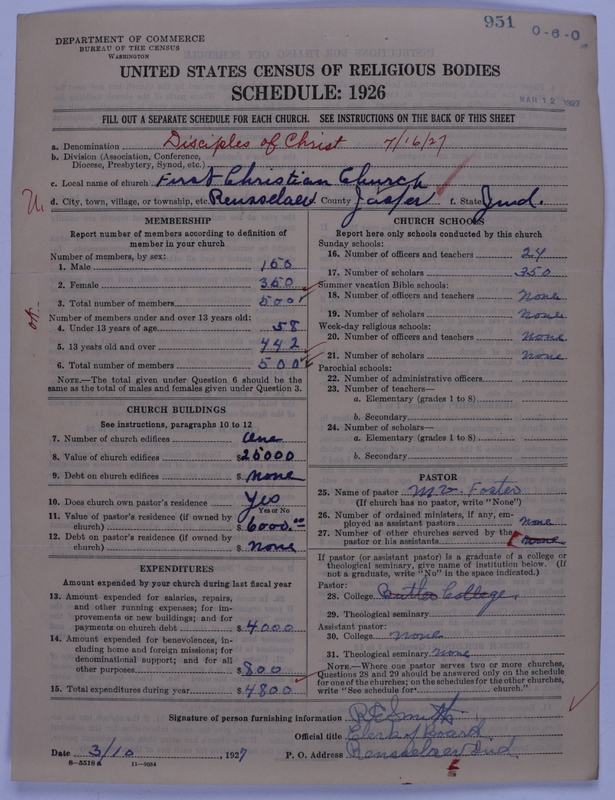 951 0-6-0
DEPARTMENT OF COMMERCE
BUREAU OF THE CENSUS
WASHINGTON
MAR 12 1927
UNITED STATES CENSUS OF RELIGIOUS BODIES
SCHEDULE: 1926
FILL OUT A SEPARATE SCHEDULE FOR EACH CHURCH. SEE INSTRUCTIONS ON THE BACK OF THIS SHEET
a. Denomination Disciples of Christ 7/16/27
b. Division (Association, Conference, Diocese, Presbytery, Synod, etc.)
c. Local name of church First Christian Church
d. City, town, village, or township, etc. Rensselaer County Jasper f. State Ind.
MEMBERSHIP
Report number of members according to definition of
member in your church
Number of members, by sex:
1. Male 150
2. Female 350
3. Total number of members 500
Number of members under and over 13 years old:
4. Under 13 years of age 58
5. 13 years old and over 442
6. Total number of members 500
NOTE.—The total given under Question 6 should be the
same as the total of males and females given under Question 3.
CHURCH BUILDINGS
See instructions, paragraphs 10 to 12
7. Number of church edifices One
8. Value of church edifices $25000
9. Debt on church edifices $ None
10. Does church own pastor's residence Yes
Yes or No
11. Value of pastor's residence (if owned by
church) $ 6000.00
12. Debt on pastor's residence (if owned by
church) $ None
EXPENDITURES
Amount expended by your church during last fiscal year
13. Amount expended for salaries, repairs,
and other running expenses; for im-
provements or new buildings; and for
payments on church debt $ 4000
14. Amount expended for benevolences, in-
cluding home and foreign missions; for
denominational support; and for all
other purposes $ 800
15. Total expenditures during year $ 4800
CHURCH SCHOOLS
Report here only schools conducted by this church
Sunday schools:
16. Number of officers and teachers 24
17. Number of scholars 350
Summer vacation Bible schools:
18. Number of officers and teachers None
19. Number of scholars None
Week-day religious schools:
20. Number of officers and teachers None
21. Number of scholars None
Parochial schools:
22. Number of administrative officers
23. Number of teachers—
a. Elementary (grades 1 to 8)
b. Secondary
24. Number of scholars—
a. Elementary (grades 1 to 8)
b. Secondary
PASTOR
25. Name of pastor Foster
(If church has no pastor, write "None")
26. Number of ordained ministers, if any, em-
ployed as assistant pastors None
27. Number of other churches served by the
pastor or his assistants None
If pastor (or assistant pastor) is a graduate of a college or
theological seminary, give name of institution below. (If
not a graduate, write "No" in the space indicated.)
Pastor:
28. College Butler College.
29. Theological seminary
Assistant pastor:
30. College None
31. Theological seminary None
NOTE.—Where one pastor serves two or more churches,
Questions 28 and 29 should be answered only on the schedule
for one of the churches; on the schedules for the other churches,
write "See schedule for church."
Signature of person furnishing information R E Smith
Official title Clerk of Board
Date 3/10, 1927 P. O. Address Rensselaer Ind
8-5518a 11-9084